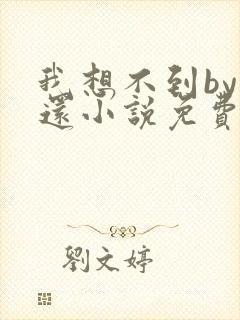 我想不到by
還小說免費
劉文婷